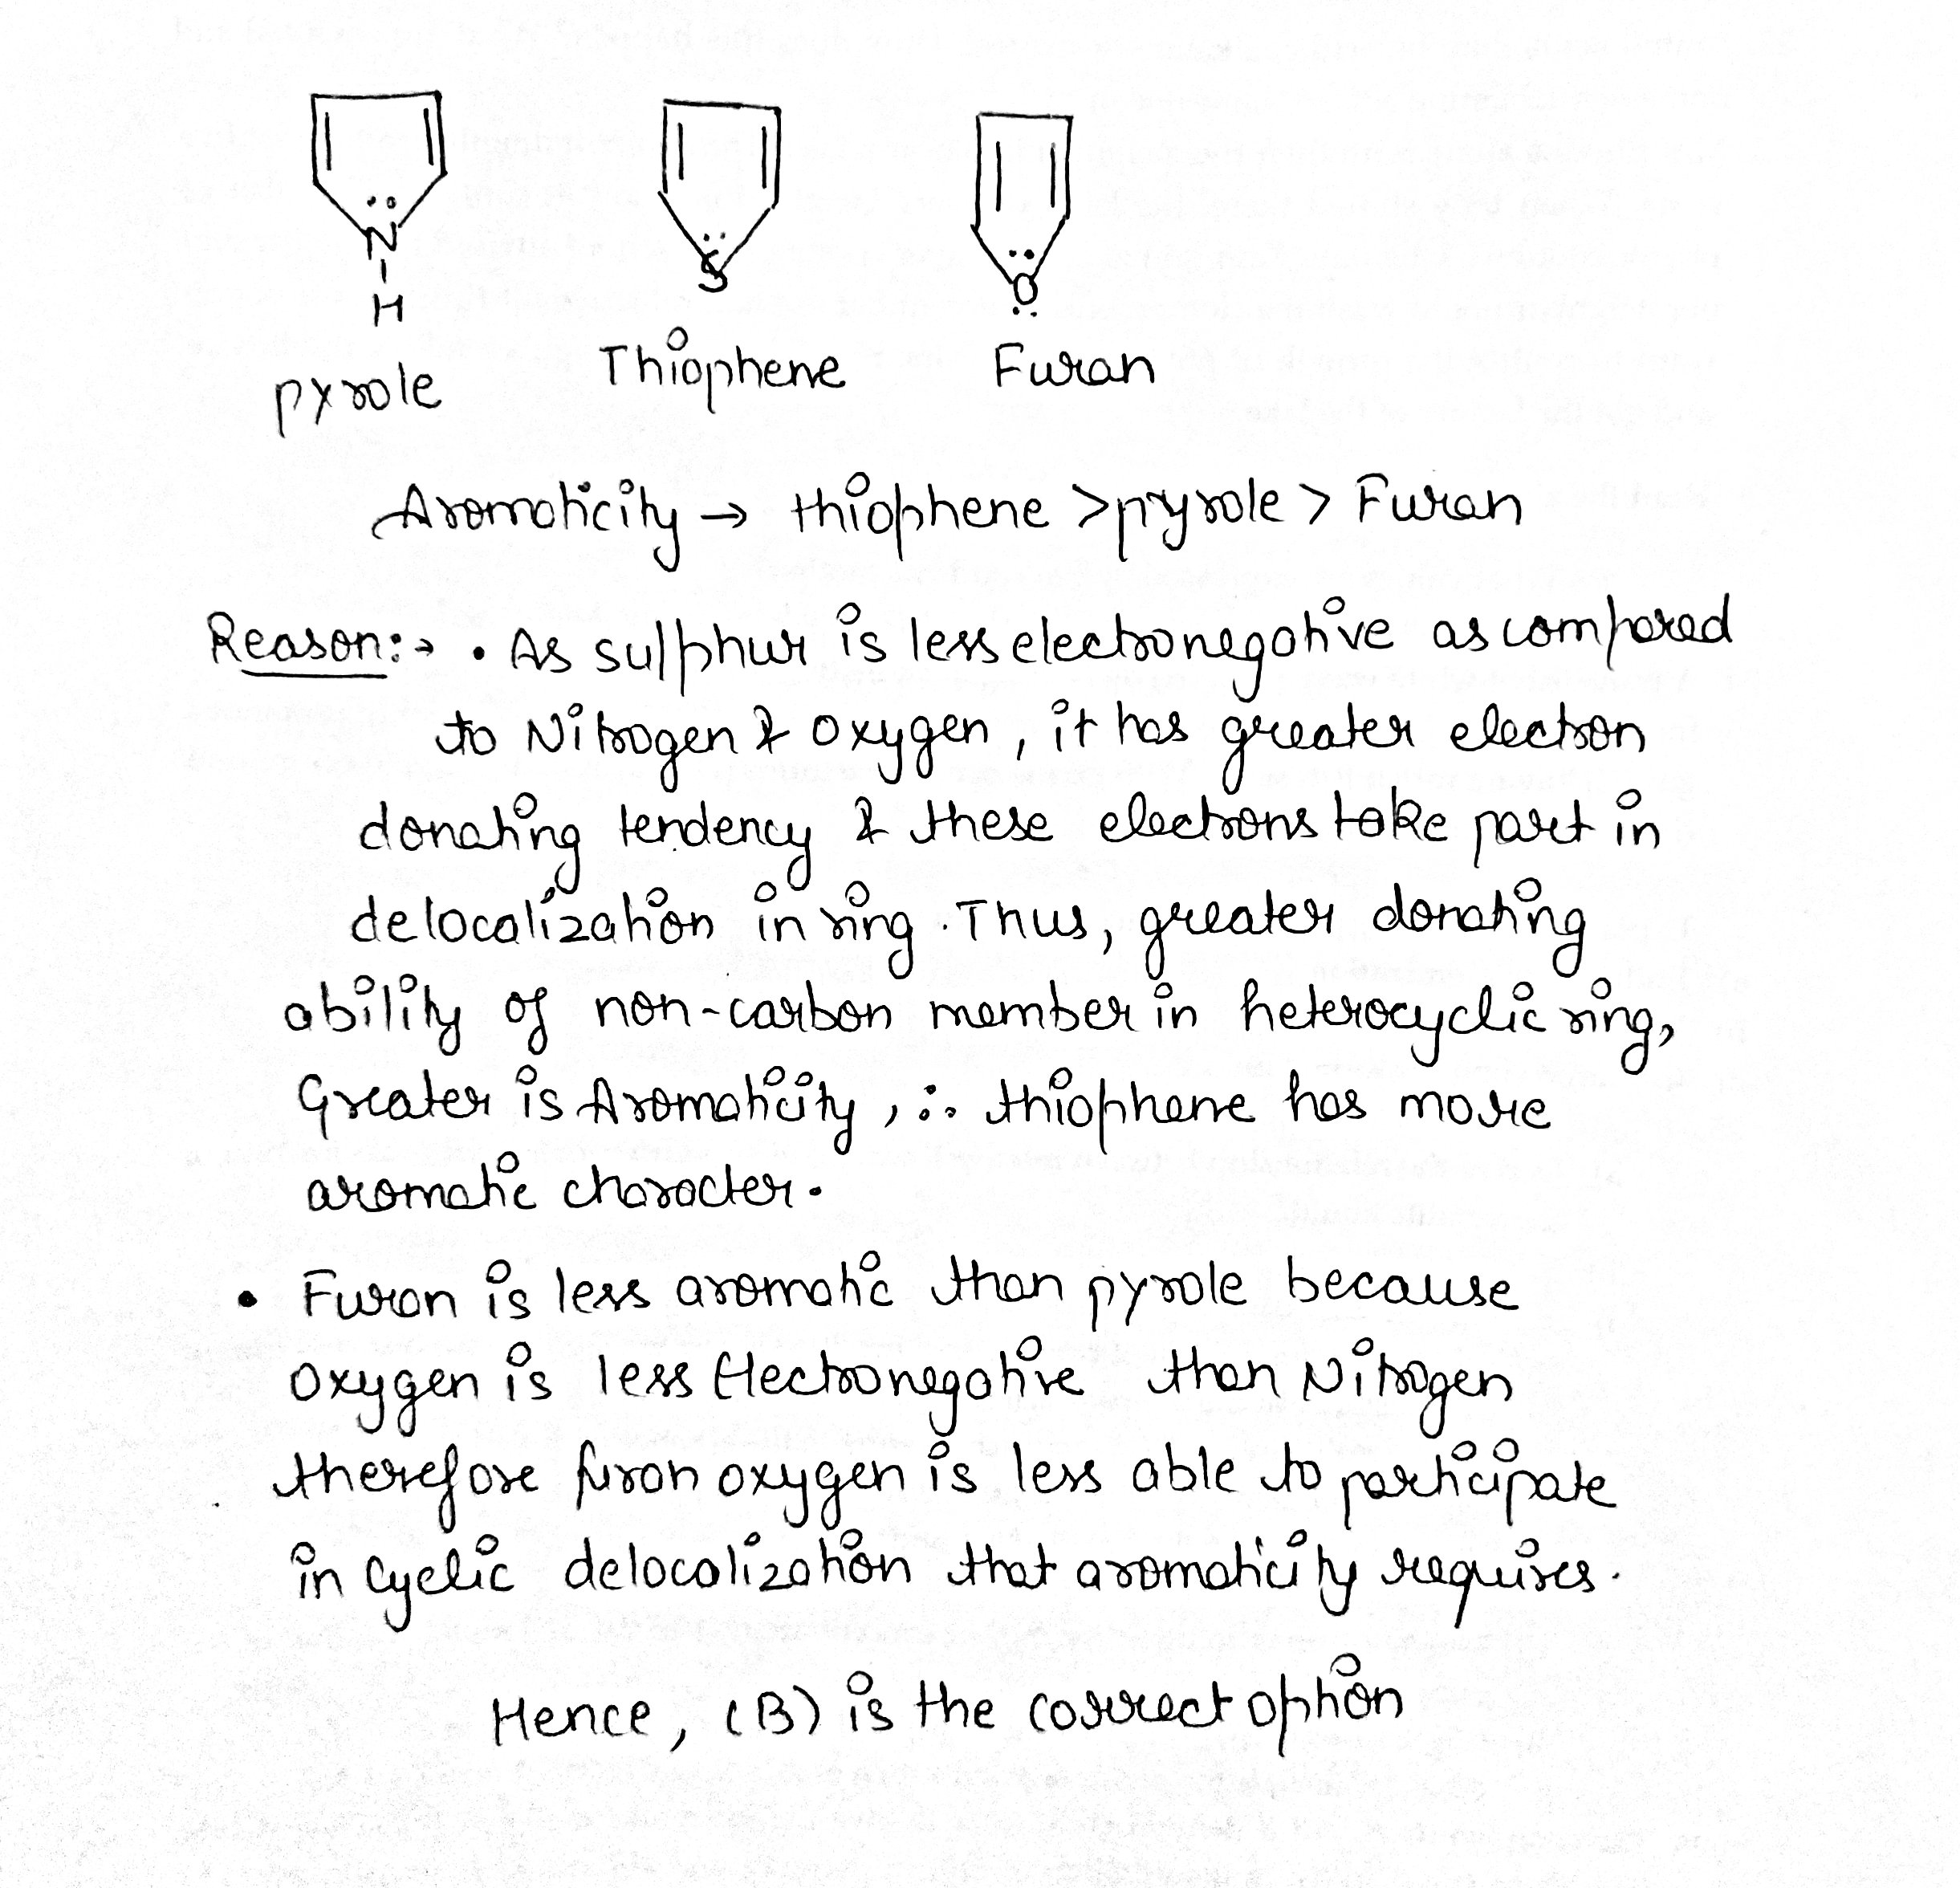 N
H
S
O
pyrole
Thiophene
Furan
Aromaticity → thiophene > pyrole > Furan
Reason:→ • As sulphur is less electronegative as compared
to Nitrogen & oxygen, it has greater electron
donating tendency & these electrons take part in
delocalization in ring. Thus, greater donating
ability of non-carbon member in heterocyclic ring,
Greater is Aromaticity, ∴ thiophene has more
aromatic character.
• Furan is less aromatic than pyrole because
oxygen is less Electronegative than Nitrogen
therefore furan oxygen is less able to participate
in Cyclic delocalization that aromaticity requires.
Hence, (B) is the correct option